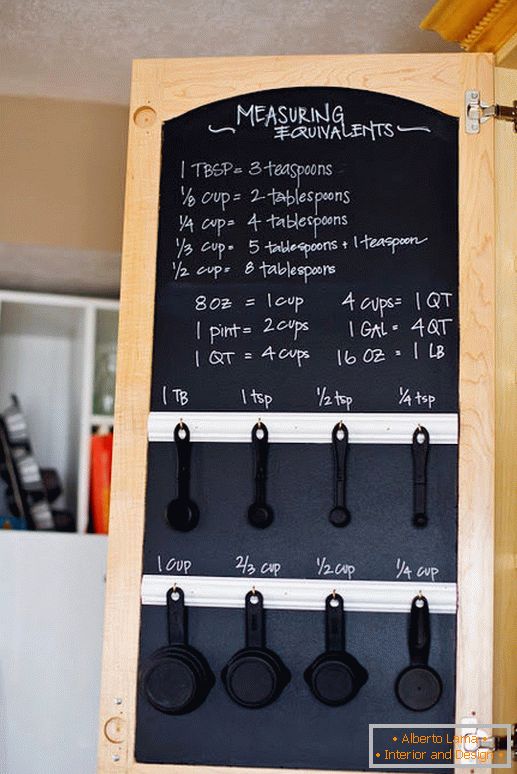 MEASURING
EQUIVALENTS
1 TBSP = 3 teaspoons
1/8 cup = 2 tablespoons
1/4 cup = 4 tablespoons
1/3 cup = 5 tablespoons + 1 teaspoon
1/2 cup = 8 tablespoons
8 oz = 1 cup
1 pint = 2 cups
1 QT = 4 cups
4 cups = 1 QT
1 GAL = 4 QT
16 OZ = 1 LB
1 TB 1 tsp 1/2 tsp 1/4 tsp
1 cup 2/3 cup 1/2 cup 1/4 cup
• Alberto Lama •
• Interior and Design •